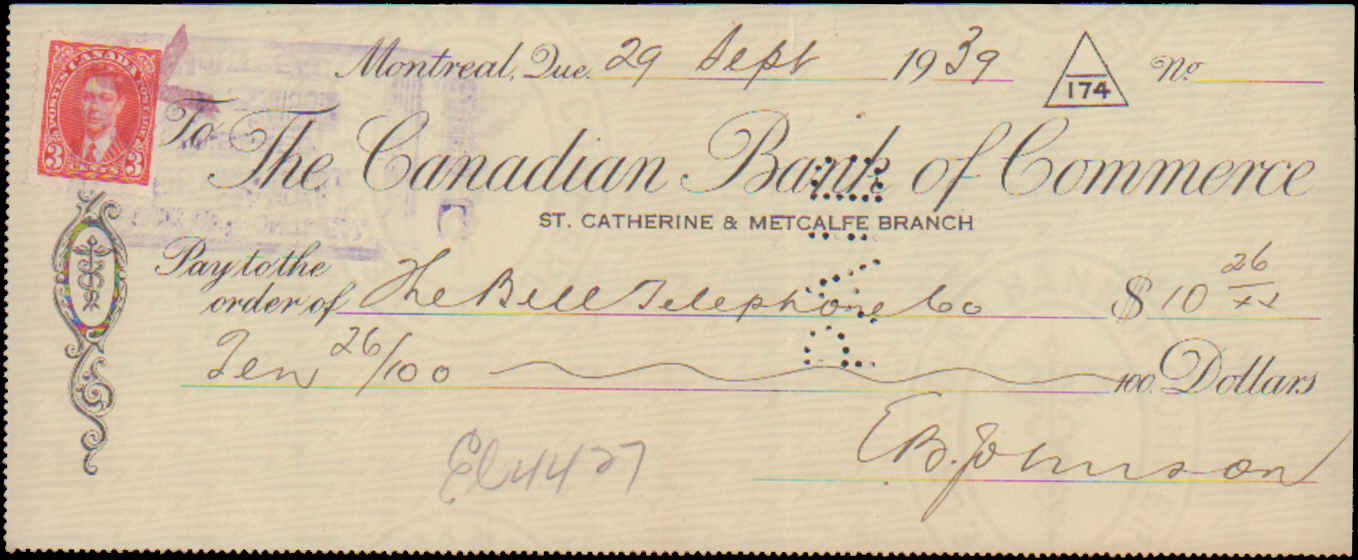 Montreal, Que. 29 Sept 1939 No.
174
POSTES CANADA POSTAGE
3 CENTS 3
To The Canadian Bank of Commerce
ST. CATHERINE & METCALFE BRANCH
Pay to the
order of The Bell Telephone Co $ 10 26/xx
Ten 26/100 100 Dollars
E.B. Johnson
El 4427